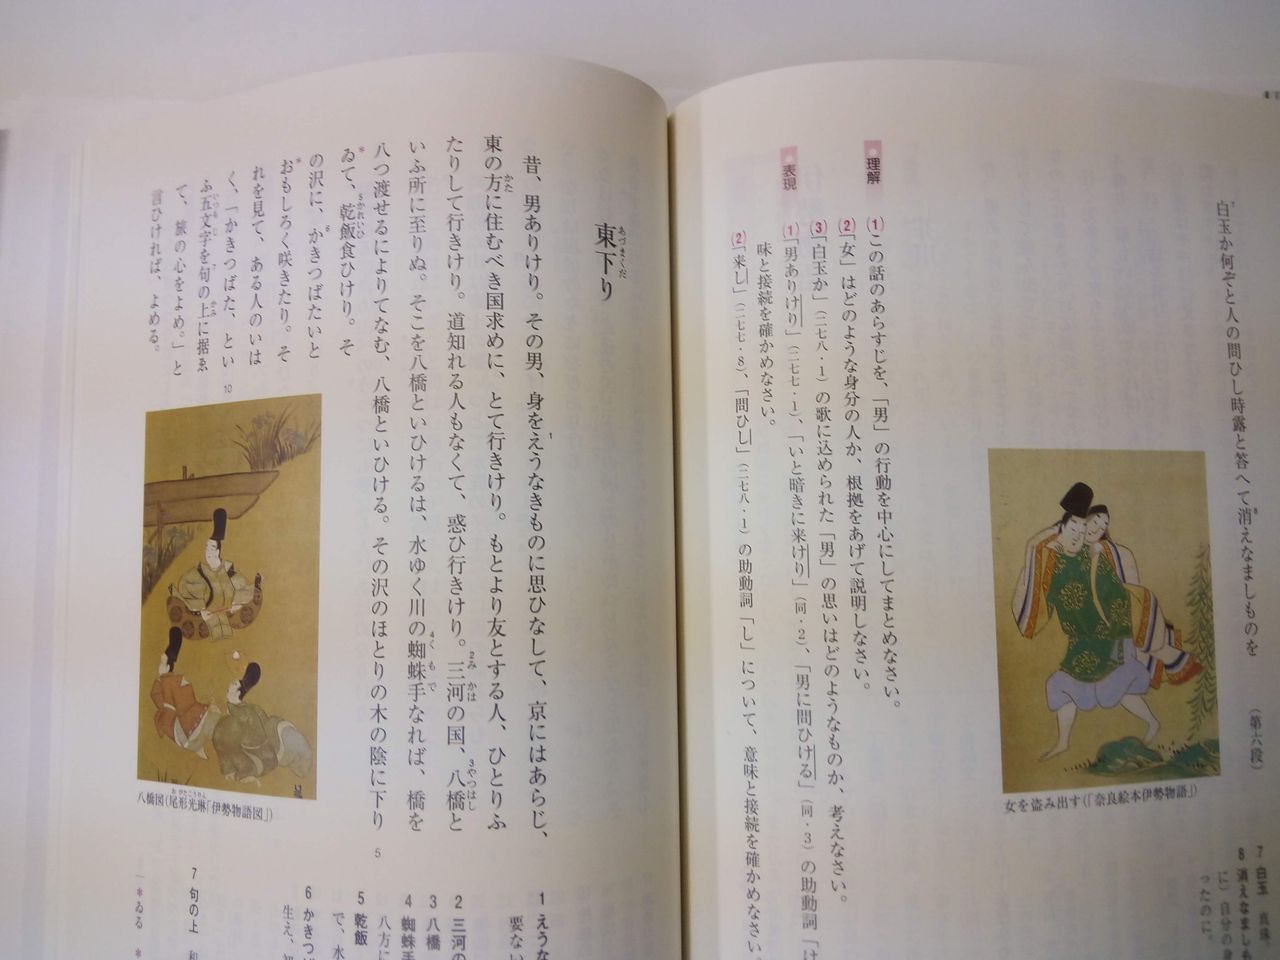 白玉か何ぞと人の問ひし時露と答へて消えなましものを
(第六段)
女を盗み出す(「奈良絵本伊勢物語」)
7 白玉 真珠。
8 消えなましも
ったのに。
理解
(1) この話のあらすじを、「男」の行動を中心にしてまとめなさい。
(2) 「女」はどのような身分の人か、根拠をあげて説明しなさい。
(3) 「白玉か」(二七八・1)の歌に込められた「男」の思いはどのようなものか、考えなさい。
表現
(1) 「男ありけり」(二七七・1)、「いと暗きに来けり」(同・2)、「男に問ひける」(同・3)の助動詞「け
味と接続を確かめなさい。
(2) 「来し」(二七七・8)、「問ひし」(二七八・1)の助動詞「し」について、意味と接続を確かめなさい。
東下り
あづまくだ
昔、男ありけり。その男、身をえうなきものに思ひなして、京にはあらじ、
東の方に住むべき国求めに、とて行きけり。もとより友とする人、ひとりふ
たりして行きけり。道知れる人もなくて、惑ひ行きけり。三河の国、八橋と
いふ所に至りぬ。そこを八橋といひけるは、水ゆく川の蜘蛛手なれば、橋を
八つ渡せるによりてなむ、八橋といひける。その沢のほとりの木の陰に下り
ゐて、乾飯食ひけり。そ
の沢に、かきつばたいと
おもしろく咲きたり。そ
れを見て、ある人のいは
く、「かきつばた、とい
ふ五文字を句の上に据ゑ
て、旅の心をよめ。」と
言ひければ、よめる。
5
10
八橋図(尾形光琳「伊勢物語図」)
1 えうな
要ない
2 三河の
3 八橋
4 蜘蛛手
八方に
5 乾飯
で、水
6 かきつば
生え、初
7 句の上 和
*ゐる *